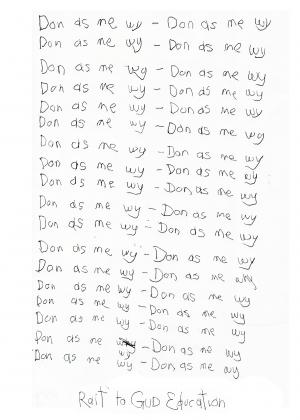 Don as me wy - Don as me wy
Don as me wy - Don as me wy
Don as me wy - Don as me wy
Don as me wy - Don as me wy
Don as me wy - Don as me wy
Don as me wy - Don as me wy
Don as me wy - Don as me wy
Don as me wy - Don as me wy
Don as me wy - Don as me wy
Don as me wy - Don as me wy
Don as me wy - Don as me wy
Don as me wy - Don as me wy
Don as me wy - Don as me wy
Don as me wy - Don as me wy
Don as me wy - Don as me wy
Don as me wy - Don as me wy
Don as me wy - Don as me wy
Don as me wy - Don as me wy
Rait to GUD Education